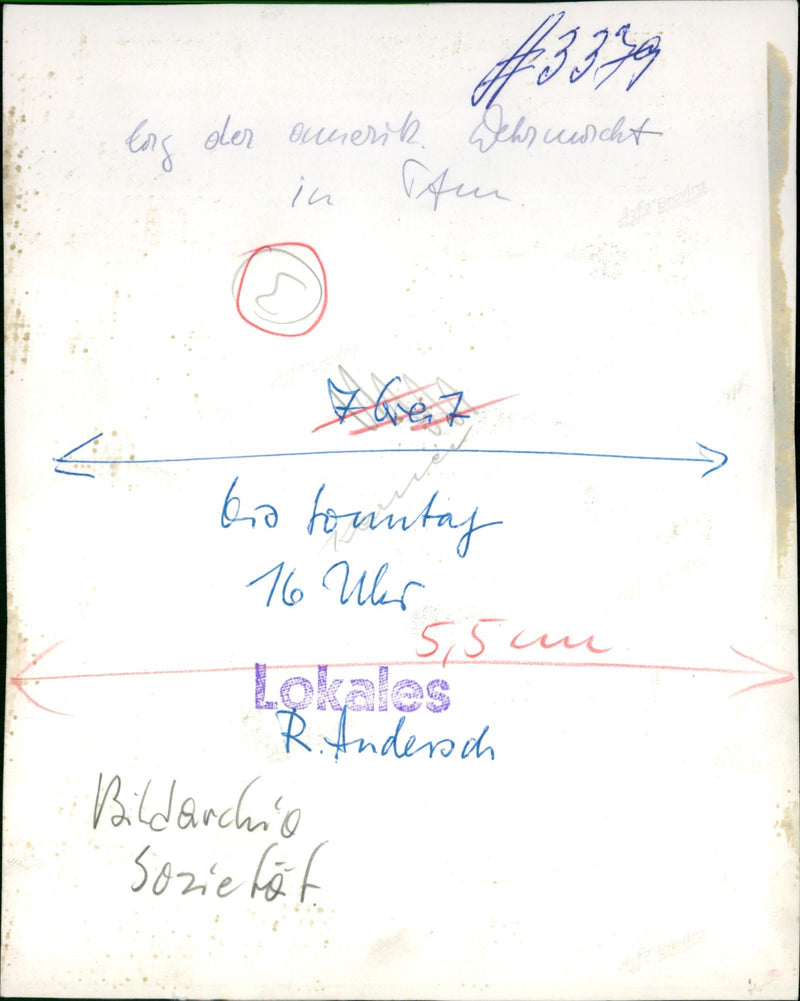 #3379
der amerik. Wehrmacht
in Ffm.
Agfa-Brovira
7 Breit
bis Sonntag
16 Uhr
5,5 cm
Lokales
R. Andersch
Bildarchiv
Sozietät.
Agfa-Brovira